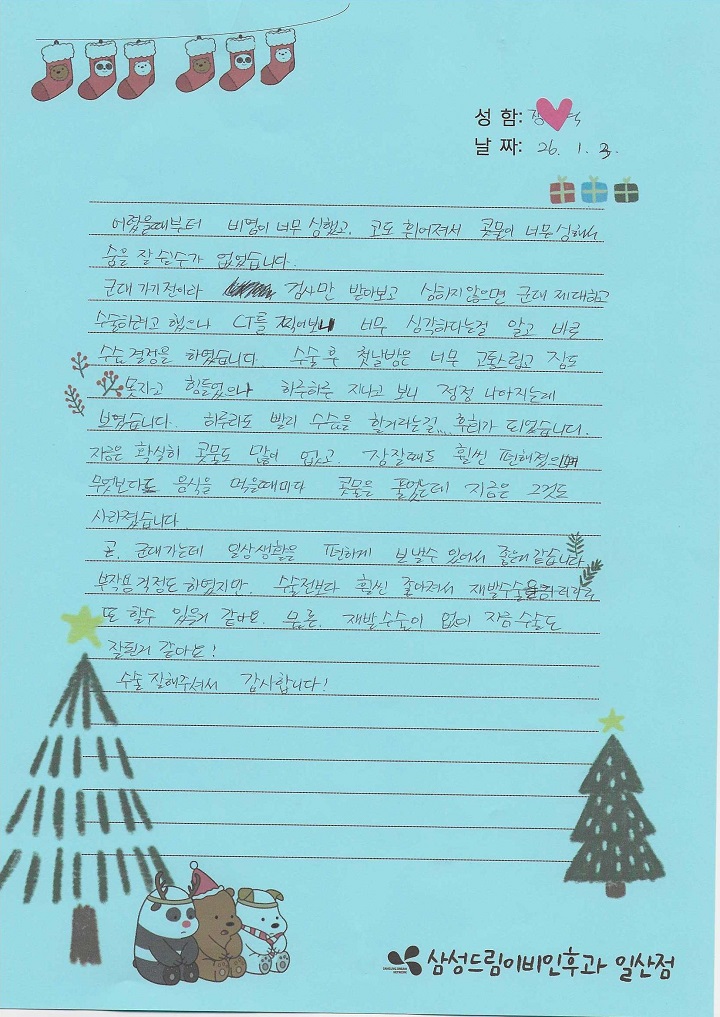 성 함:
날 짜: 26. 1. 3.
어렸을때부터 비염이 너무 심했고. 코도 휘어져서 콧물이 너무 심해서
숨을 잘 쉴수가 없었습니다.
군대 가기전이라 검사만 받아보고 심하지않으면 군대 제대하고
수술하려고 했으나 CT를 찍어보니 너무 심각하다는걸 알고 바로
수술 결정을 하였습니다. 수술 후 첫날밤은 너무 고통스럽고 잠도
못자고 힘들었으나 하루하루 지나고 보니 점점 나아지는게
보였습니다. 하루라도 빨리 수술을 할거라는걸... 후회가 되었습니다.
지금은 확실히 콧물도 많이 없고. 잠잘때도 훨씬 편해졌으며
무엇보다도 음식을 먹을때마다 콧물을 풀었는데 지금은 그것도
사라졌습니다.
곧. 군대가는데 일상생활을 편하게 보낼수 있어서 좋은거 같습니다.
부작용 걱정도 하였지만. 수술전보다 훨씬 좋아져서 재발수술을
또 할수 있을거 같아요. 물론. 재발수술이 없이 지금 수술도
잘된거 같아요!
수술 잘해주셔서 감사합니다!
삼성드림이비인후과 일산점